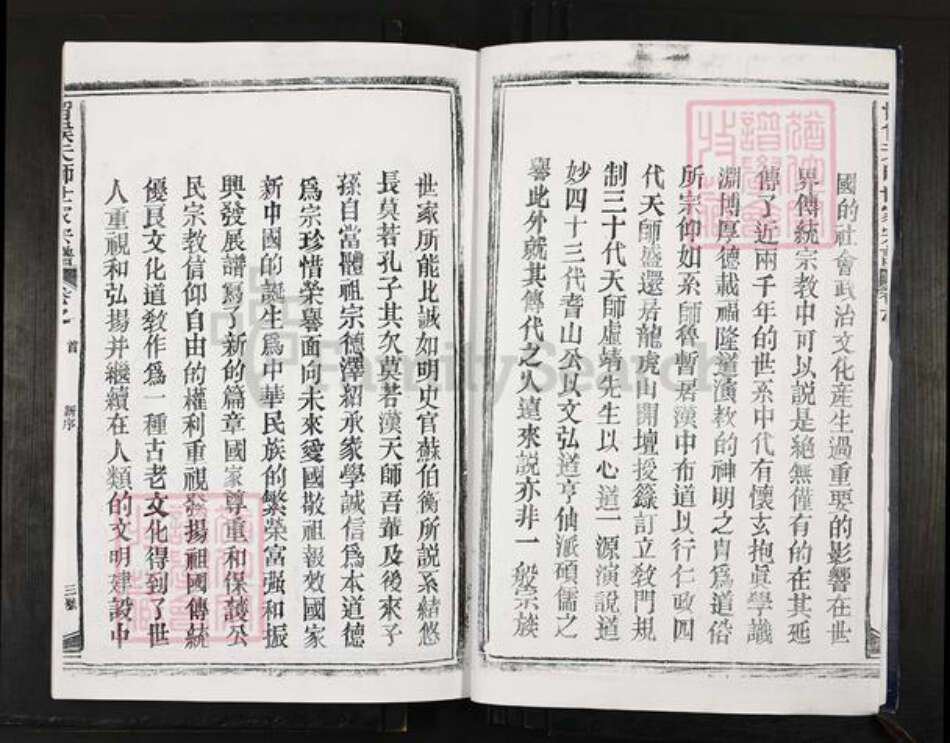 國的社會政治文化産生過重要的影響在世
界傳統宗教中可以説是絶無僅有的在其延
傳了近兩千年的世系中代有懷玄抱眞學識
淵博厚德載福隆道演教的神明之胄爲道俗
所宗仰如系師魯暫居漢中布道以行仁政四
代天師盛還居龍虎山開壇授籙訂立敎門規
制三十代天師虛靖先生以心道一源演説道
妙四十三代耆山公以文弘道亨仙派碩儒之
譽此外就其傳代之久遠來説亦非一般宗族
世家所能比誠如明史官蘇伯衡所説系緒悠
長莫若孔子其次莫若漢天師吾輩及後來子
孫自當體祖宗德澤紹承家學誠信爲本道德
爲宗珍惜榮譽面向未來愛國敬祖報效國家
新中國的誕生爲中華民族的繁榮富强和振
興發展譜寫了新的篇章國家尊重和保護公
民宗教信仰自由的權利重視發揚祖國傳統
優良文化道敎作爲一種古老文化得到了世
人重視和弘揚并繼續在人類的文明建設中
天師世家宗譜 首 新序 三
FamilySearch